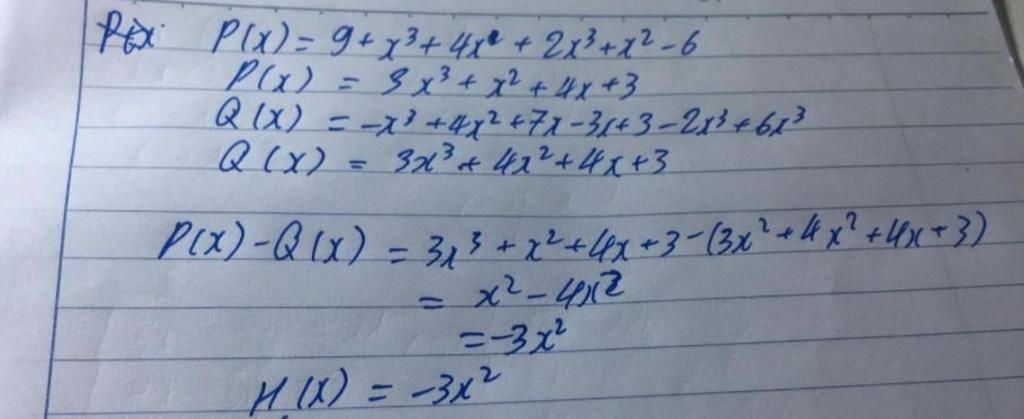 P(x) = 9 + x³ + 4x + 2x³ + x² - 6
P(x) = 3x³ + x² + 4x + 3
Q(x) = -x³ + 4x² + 7x - 3x + 3 - 2x³ + 6x³
Q(x) = 3x³ + 4x² + 4x + 3
P(x) - Q(x) = 3x³ + x² + 4x + 3 - (3x² + 4x² + 4x + 3)
= x² - 4x²
= -3x²
H(x) = -3x²